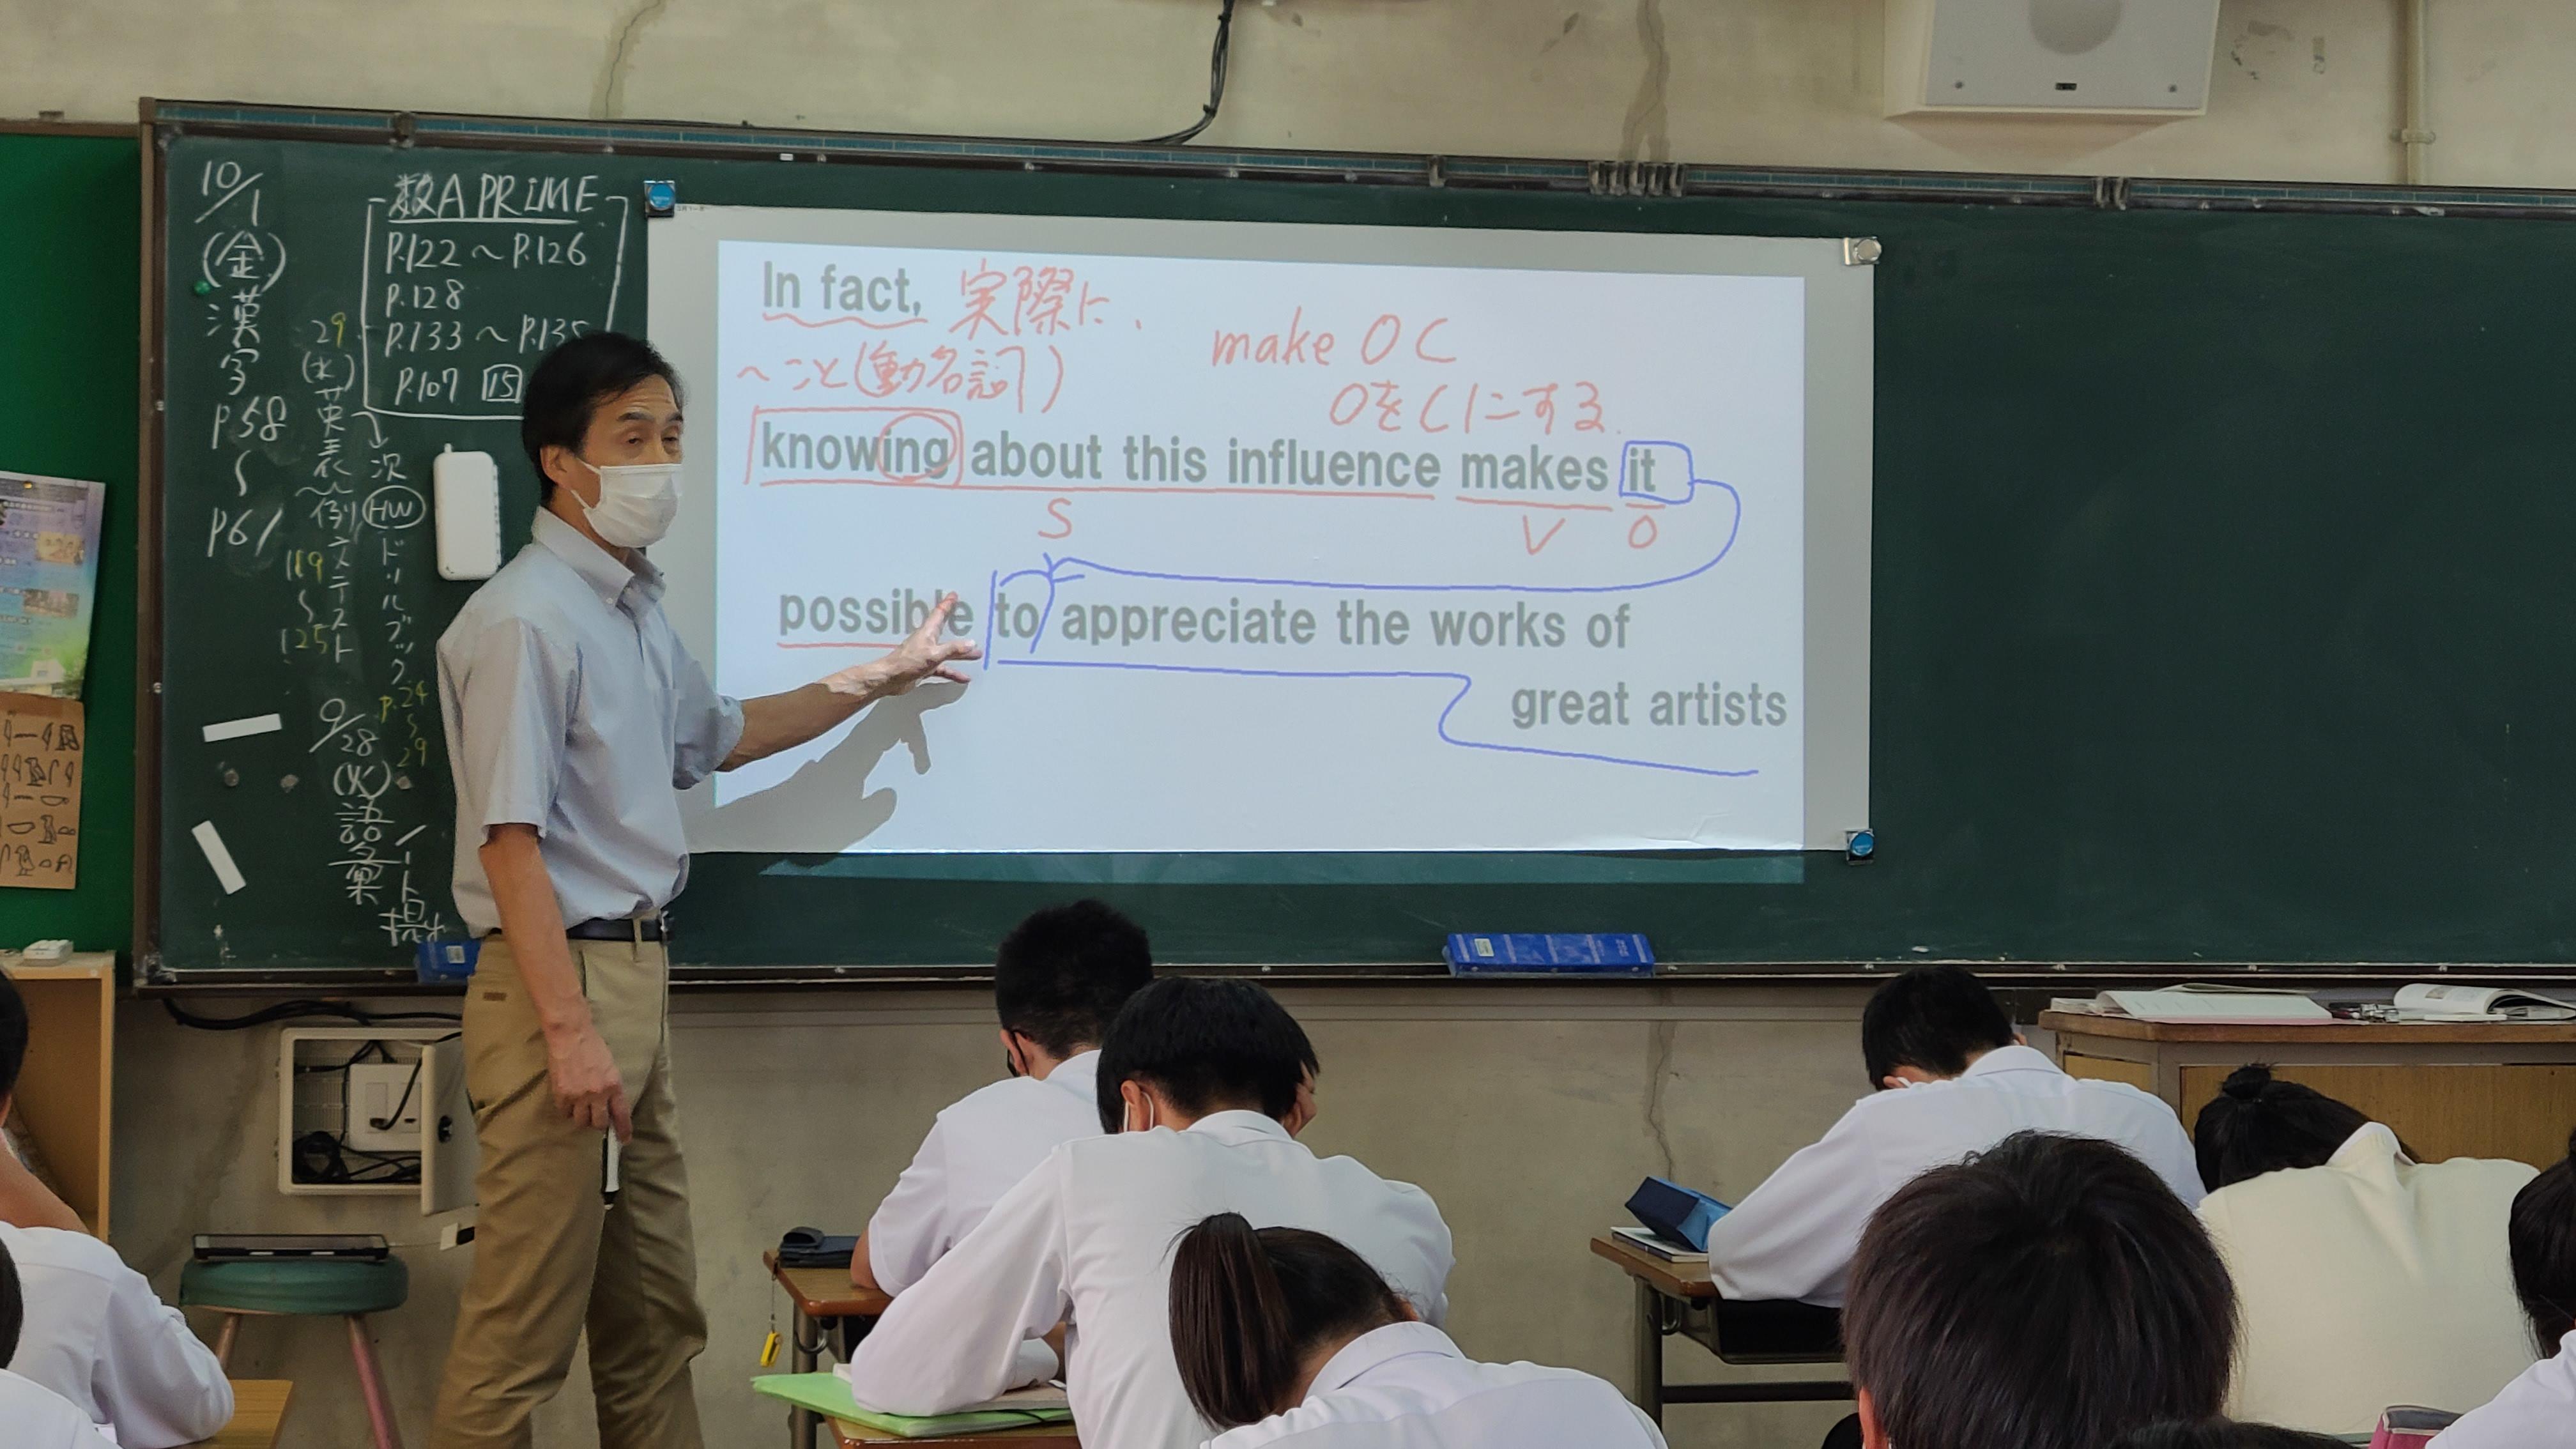 10/1
(金)
漢字
P58
〜
P61
数A PRIME
P.122 〜 P.126
P.128
P.133 〜 P.135
P.107 15
29
(水)
英表
〜例文テスト
119
〜
125
次
HW
ドリルブック
P.24
〜
29
9/28
(火)
語彙
ノート提出
In fact, 実際に、
〜こと(動名詞)
make O C
OをCにする
knowing about this influence makes it
S V O
possible to appreciate the works of
great artists